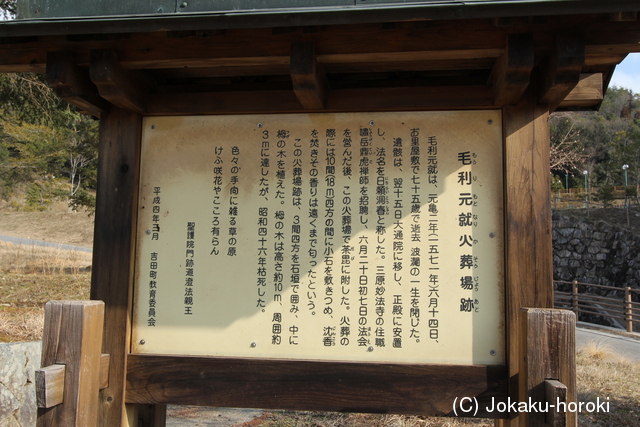 毛利元就火葬場跡
もうりもとなりかそうじょうあと
毛利元就は、元亀二年(一五七一年)六月十四日、
お里屋敷で七十五歳で逝去、波瀾の一生を閉じた。
遺骸は、翌十五日大通院に移し、正殿に安置
し、法名を日頼洞春と称した。三原妙法寺の住職
嘯岳鼎虎禅師を招聘し、六月二十日初七日の法会
を営んだ後、この火葬場で荼毘に附した。火葬の
際には10間(18m)四方の間に小石を敷きつめ、沈香
を焚きその香りは遠くまで匂ったという。
この火葬場跡は、3間四方を石垣で囲み、中に
栂の木を植えた。栂の木は高さ約10m、周囲約
3mに達したが、昭和四十六年枯死した。
色々の手向に雑る草の原
けふ咲花やこころ有らん
聖護院門跡道澄法親王
平成四年三月 吉田町教育委員会
(C) Jokaku-horoki